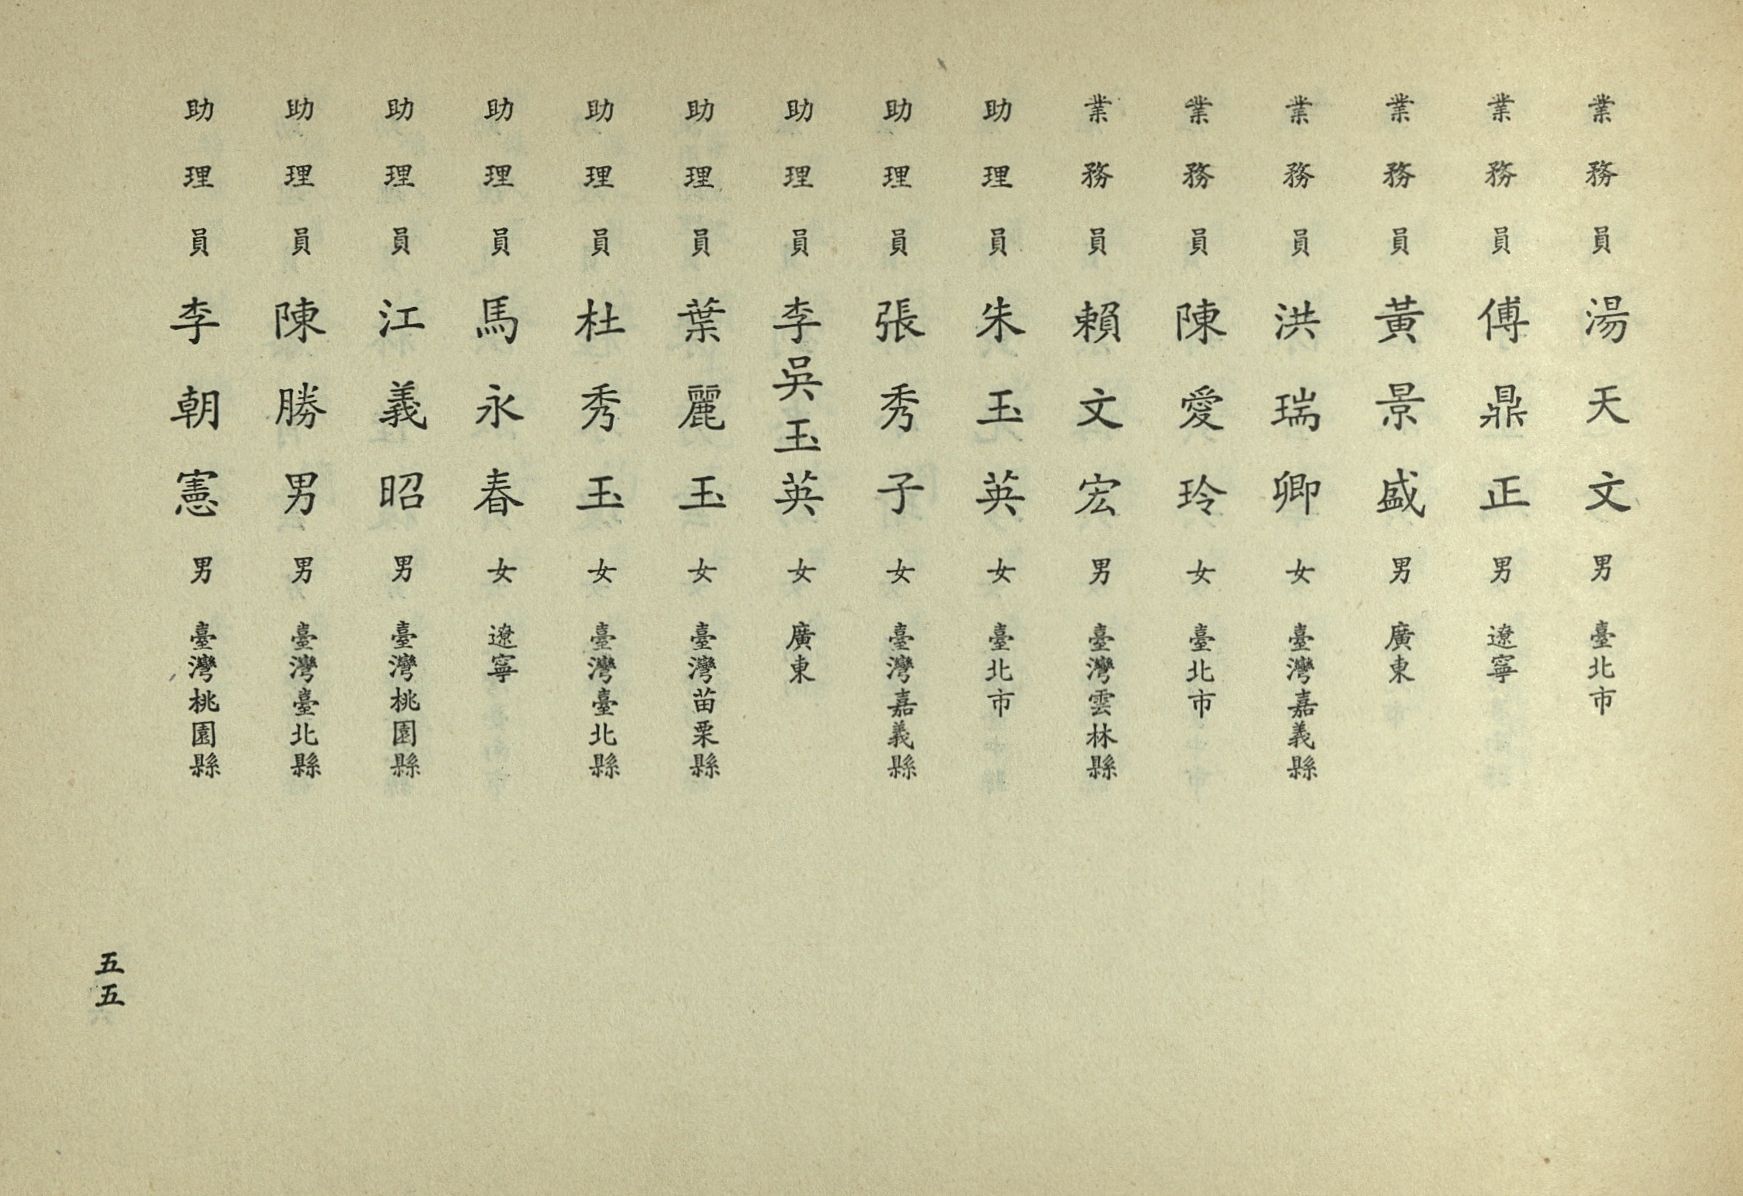 業務員湯天文男臺北市
業務員傅鼎正男遼寧
業務員黃景盛男廣東
業務員洪瑞卿女臺灣嘉義縣
業務員陳愛玲女臺北市
業務員賴文宏男臺灣雲林縣
助理員朱玉英女臺北市
助理員張秀子女臺灣嘉義縣
助理員李吳玉英女廣東
助理員葉麗玉女臺灣苗栗縣
助理員杜秀玉女臺灣臺北縣
助理員馬永春女遼寧
助理員江義昭男臺灣桃園縣
助理員陳勝男男臺灣臺北縣
助理員李朝憲男臺灣桃園縣
五五